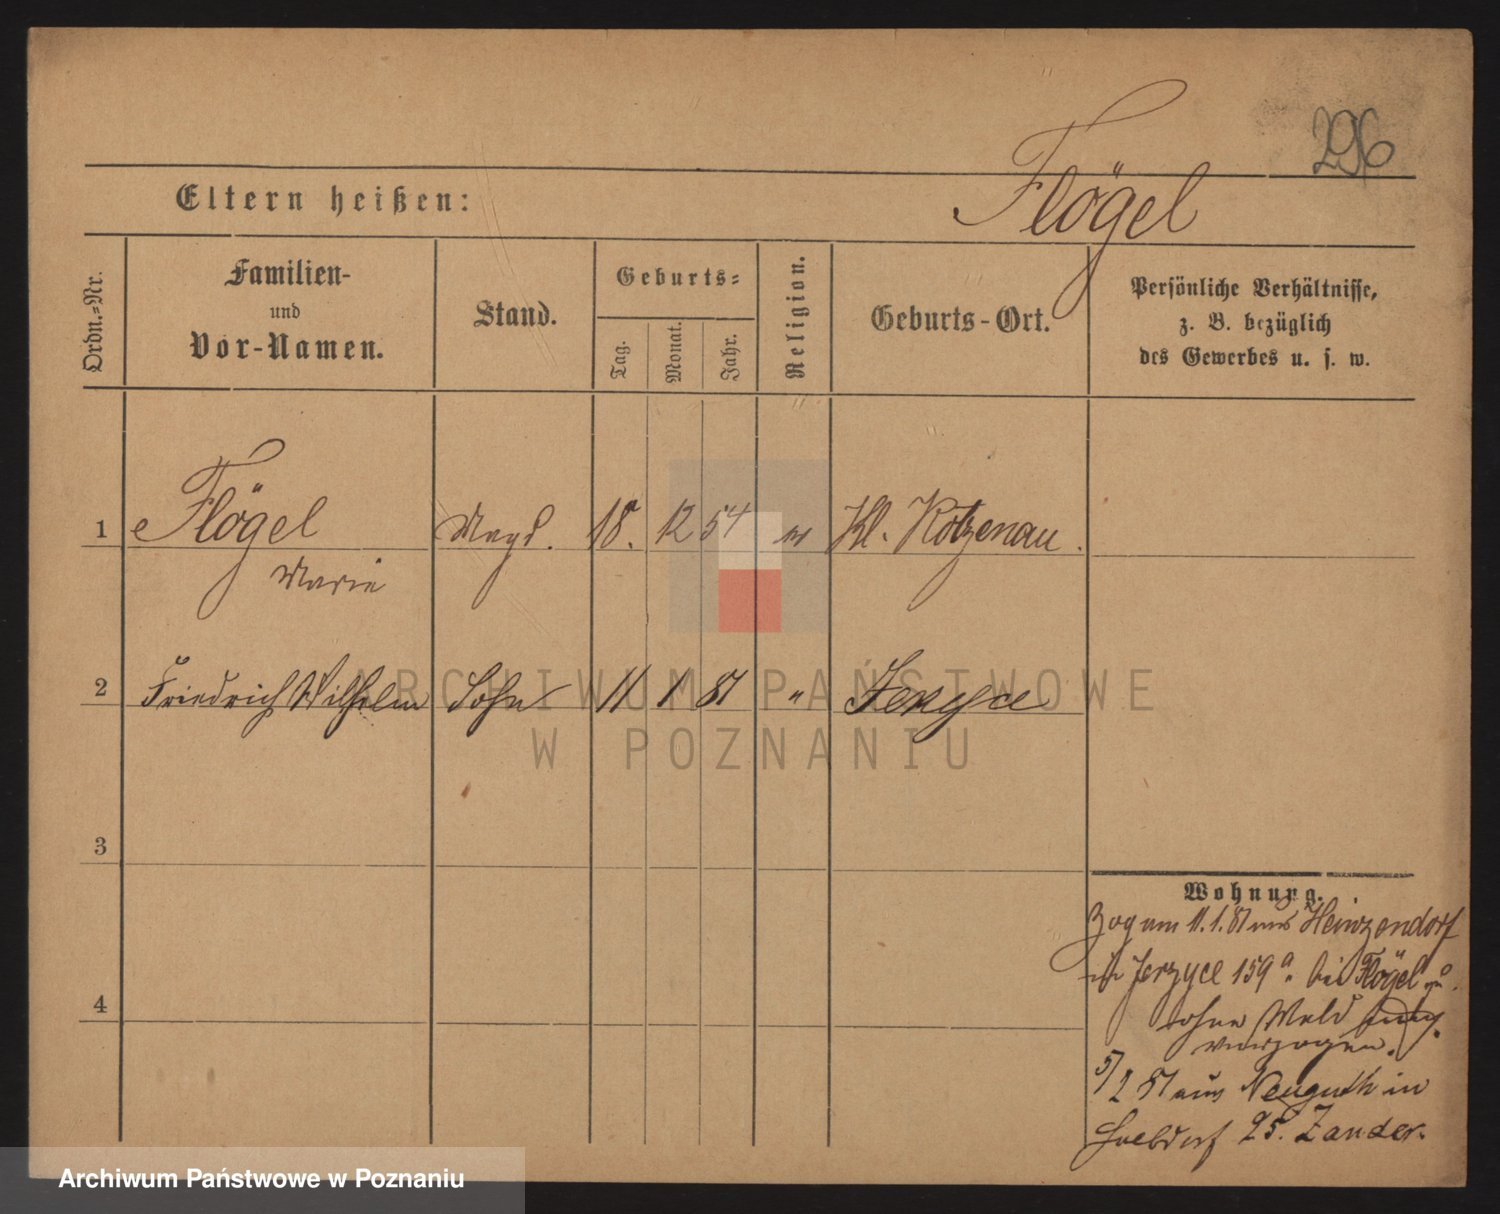 296
Flögel
Eltern heißen:
Ordn.-Nr.
Familien-
und
Vor-Namen.
Stand.
Geburts-
Tag.
Monat.
Jahr.
Religion.
Geburts-Ort.
Persönliche Verhältnisse,
z. B. bezüglich
des Gewerbes u. s. w.
1 Flögel Magd. 18. 12 54 ev Kl. Kotzenau.
Marie
2 Friedrich Wilhelm Sohn 11 1 87 " Jerzyce
3
4
Wohnung.
Zog am 11.1.87 aus Heinzendorf
in Jerzyce 159a. bei Flögel zu.
ohne Meld
verzogen.
5/2 87 aus Neuguth in
25. Zander.
ARCHIWUM PAŃSTWOWE
W POZNANIU
Archiwum Państwowe w Poznaniu